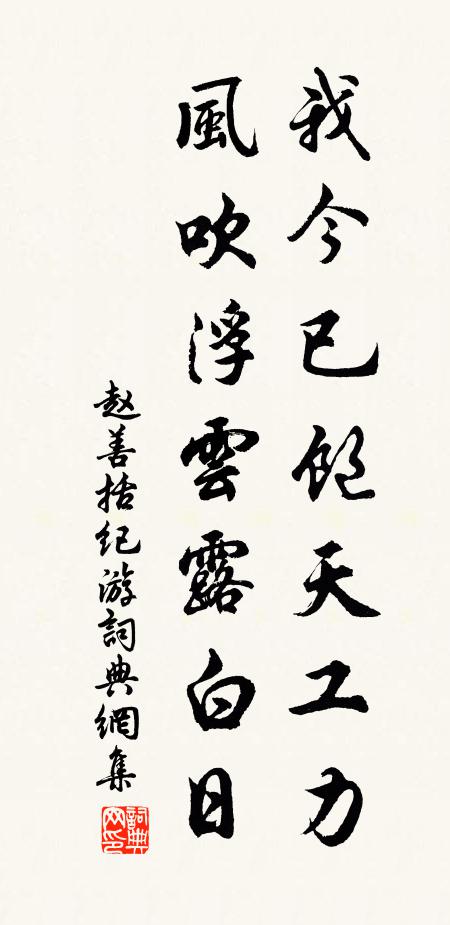 我今已飽天工力
風吹浮雲露白日
赵善括纪游詞典網集
詞典网印